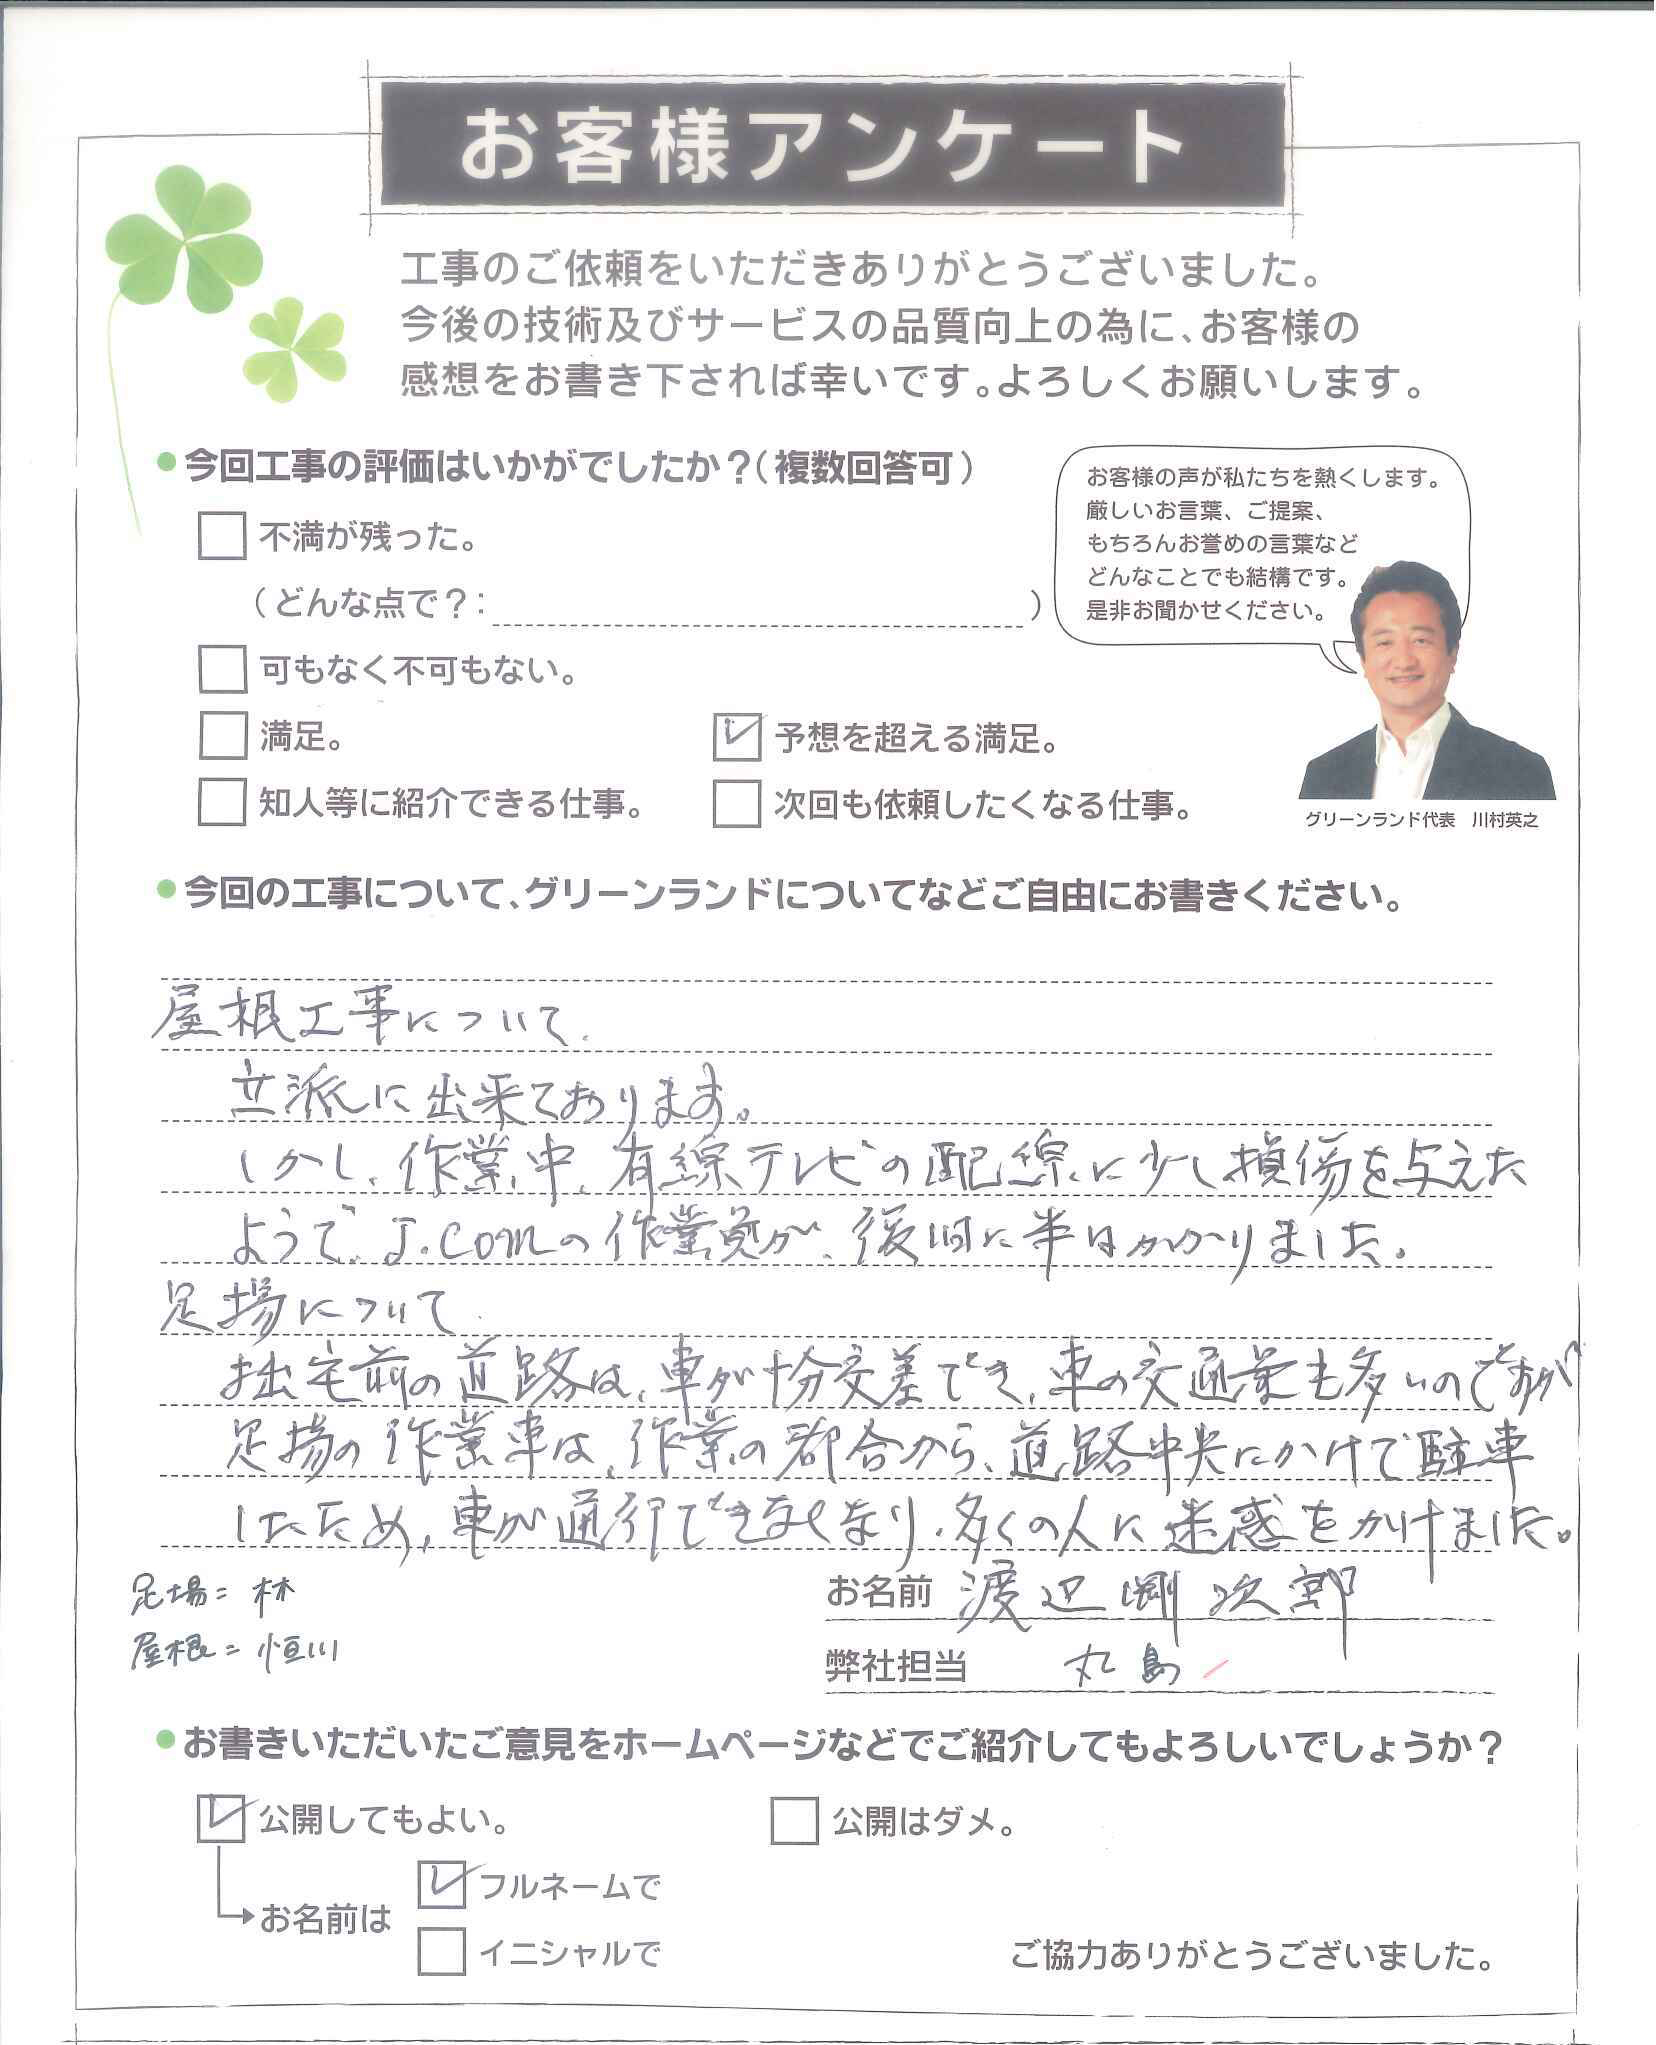 お客様アンケート
工事のご依頼をいただきありがとうございました。
今後の技術及びサービスの品質向上の為に、お客様の
感想をお書き下されば幸いです。よろしくお願いします。
●今回工事の評価はいかがでしたか?(複数回答可)
不満が残った。
(どんな点で?: )
可もなく不可もない。
満足。
予想を超える満足。
知人等に紹介できる仕事。
次回も依頼したくなる仕事。
お客様の声が私たちを熱くします。
厳しいお言葉、ご提案、
もちろんお誉めの言葉など
どんなことでも結構です。
是非お聞かせください。
グリーンランド代表 川村英之
●今回の工事について、グリーンランドについてなどご自由にお書きください。
屋根工事について.
立派に出来ております。
しかし、作業中、有線テレビの配線に少し損傷を与えた
ようで、J.comの作業員が、復旧に半日かかりました。
足場について
拙宅前の道路は、車が十分交差でき、車の交通量も多いのですが
足場の作業車は、作業の都合から、道路中央にかけて駐車
したため、車が通行できなくなり、多くの人に迷惑をかけました。
足場=林
屋根=恒川
お名前 渡辺剛次郎
弊社担当 丸島
●お書きいただいたご意見をホームページなどでご紹介してもよろしいでしょうか?
公開してもよい。
公開はダメ。
お名前は
フルネームで
イニシャルで
ご協力ありがとうございました。